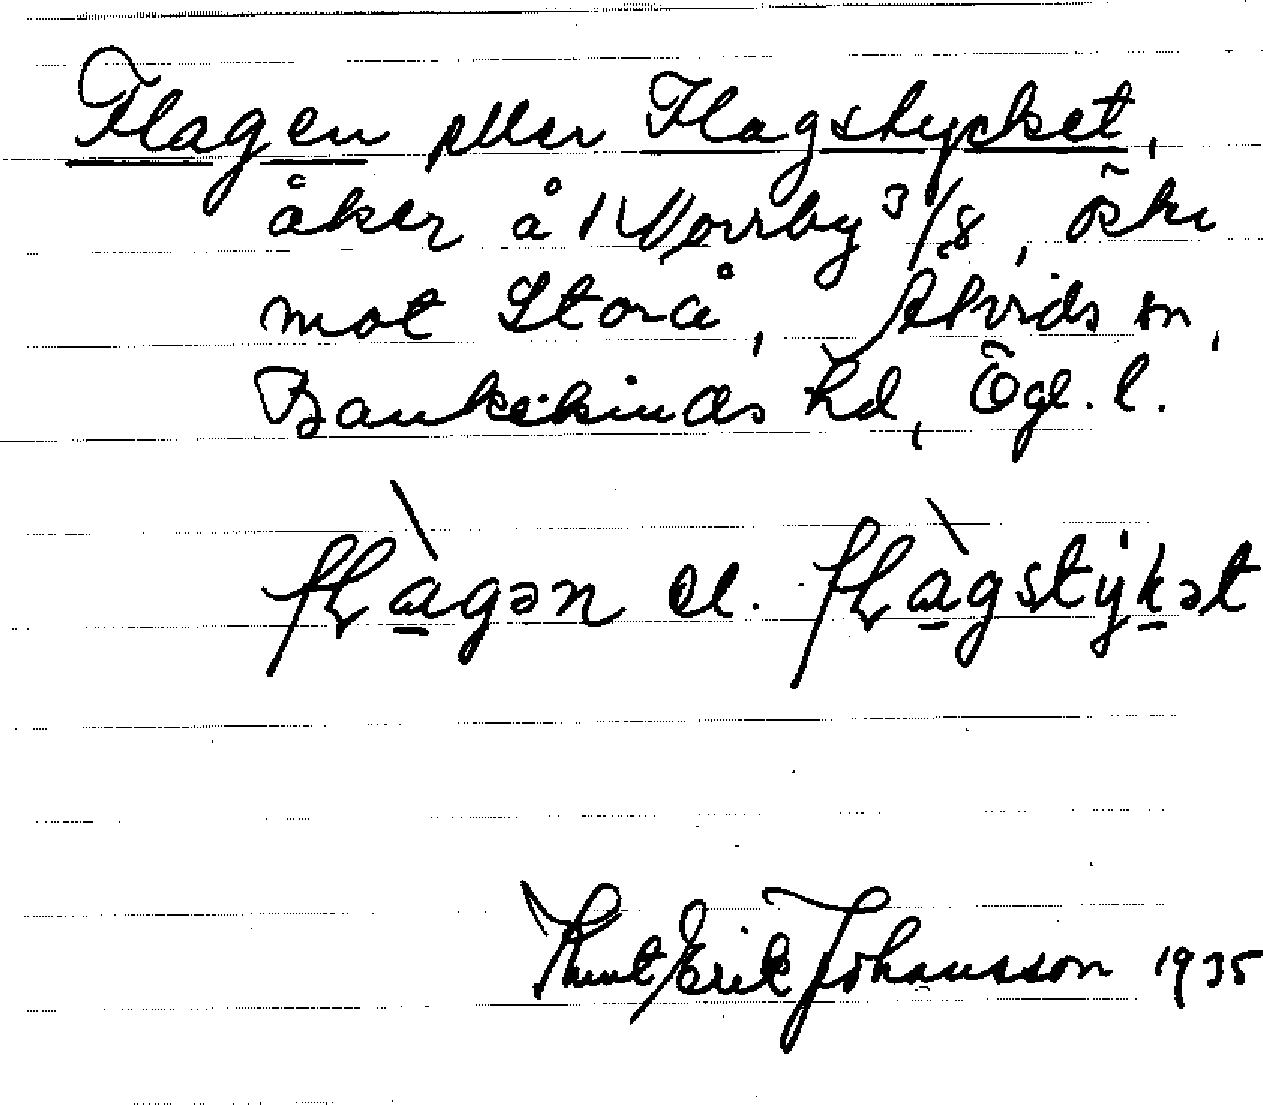 Flagen eller Flagstycket,
åker å Norrby 3/8, östr
mot Storå, Åtvids sn,
Bankekinds hd, Ögl. l.
flagən el. flagstykət
Knut Erik Johansson 1935